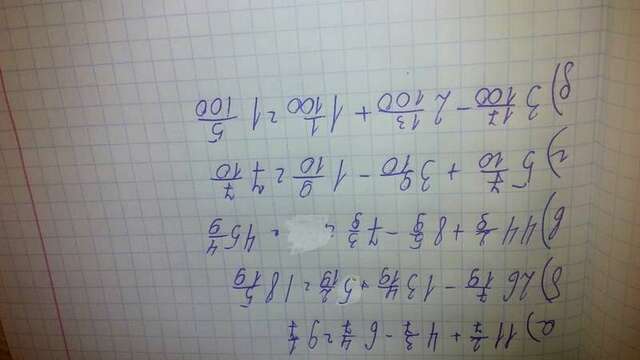 а) 11 2/7 + 4 3/7 - 6 4/7 = 9 1/7
б) 26 7/19 - 13 4/19 + 5 2/19 = 18 5/19
в) 44 2/9 + 8 5/9 - 7 3/9 = = 45 4/9
г) 5 7/10 + 3 9/10 - 1 9/10 = 7 7/10
д) 3 17/100 - 2 13/100 + 1 1/100 = 1 5/100